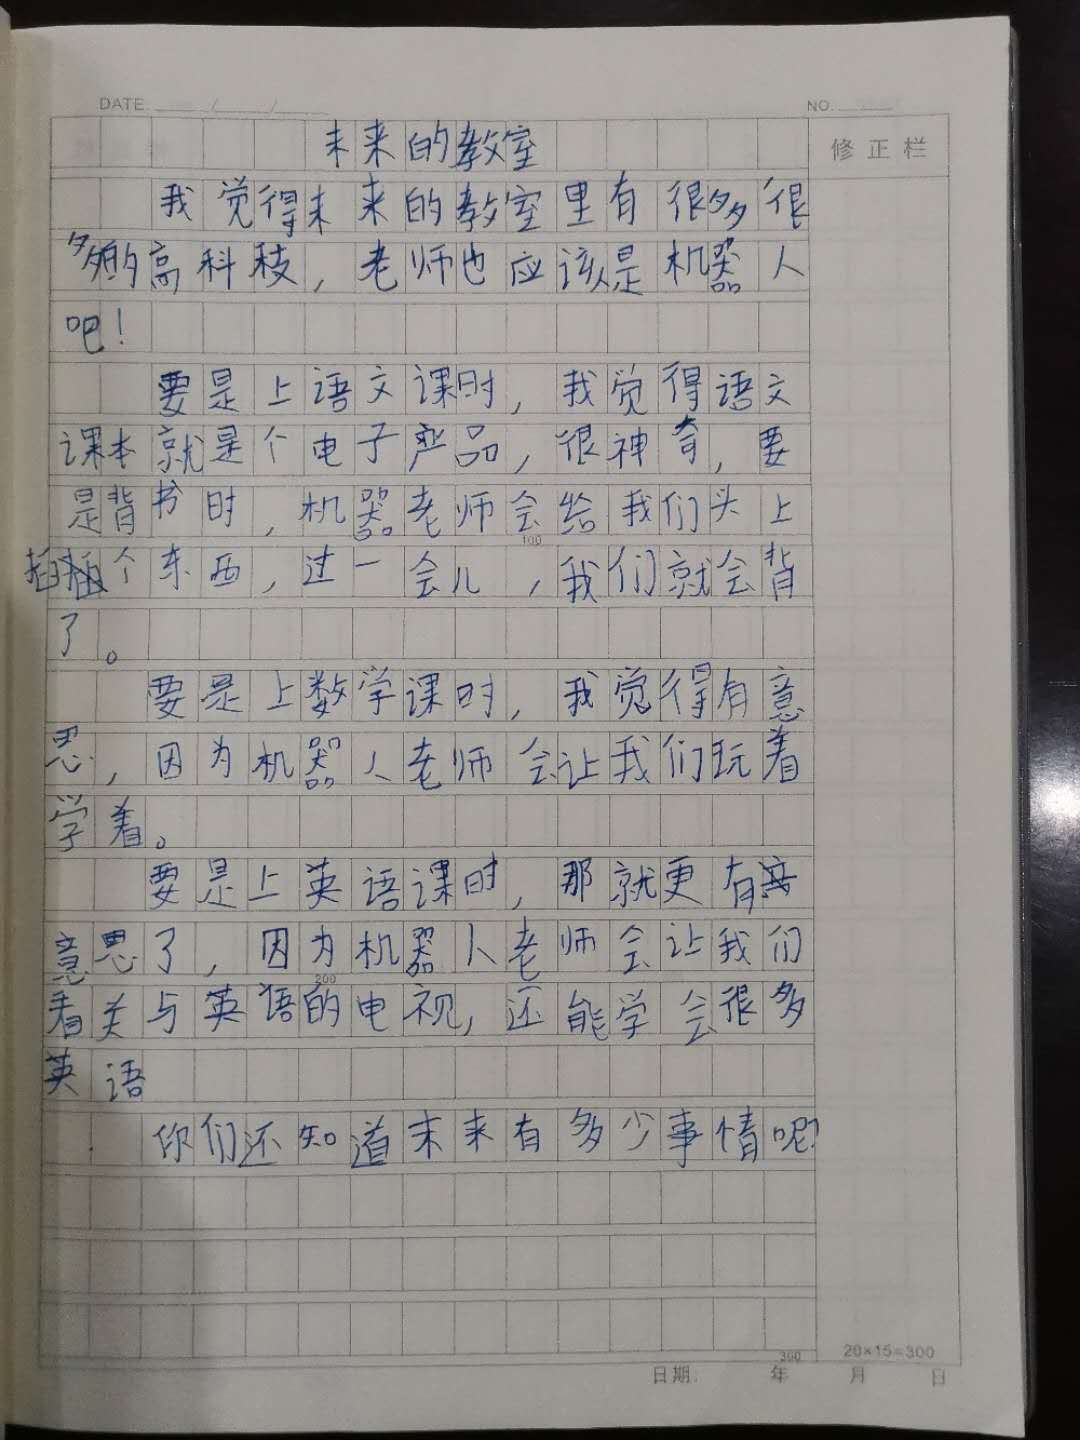 DATE. / /
NO.
未来的教室
修正栏
我觉得未来的教室里有很多很
多的高科技，老师也应该是机器人
吧！
要是上语文课时，我觉得语文
课本就是个电子产品，很神奇，要
是背书时，机器老师会给我们头上
插个东西，过一会儿，我们就会背
100
了。
要是上数学课时，我觉得有意
思，因为机器人老师会让我们玩着
学着。
要是上英语课时，那就更有
意思了，因为机器人老师会让我们
200
看关与英语的电视，还能学会很多
英语
你们还知道未来有多少事情呢？
300
20×15=300
日期: 年 月 日